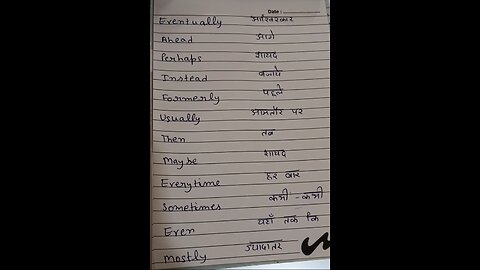 Date :
Eventually आखिरकार
Ahead आगे
Perhaps शायद
Instead बजाये
Formerly पहले
Usually आमतौर पर
Then तब
Maybe शायद
Everytime हर बार
Sometimes कभी - कभी
Even यहाँ तक कि
Mostly ज्यादातर